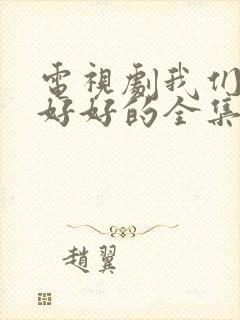 電視劇我们
好好的全集
趙翼